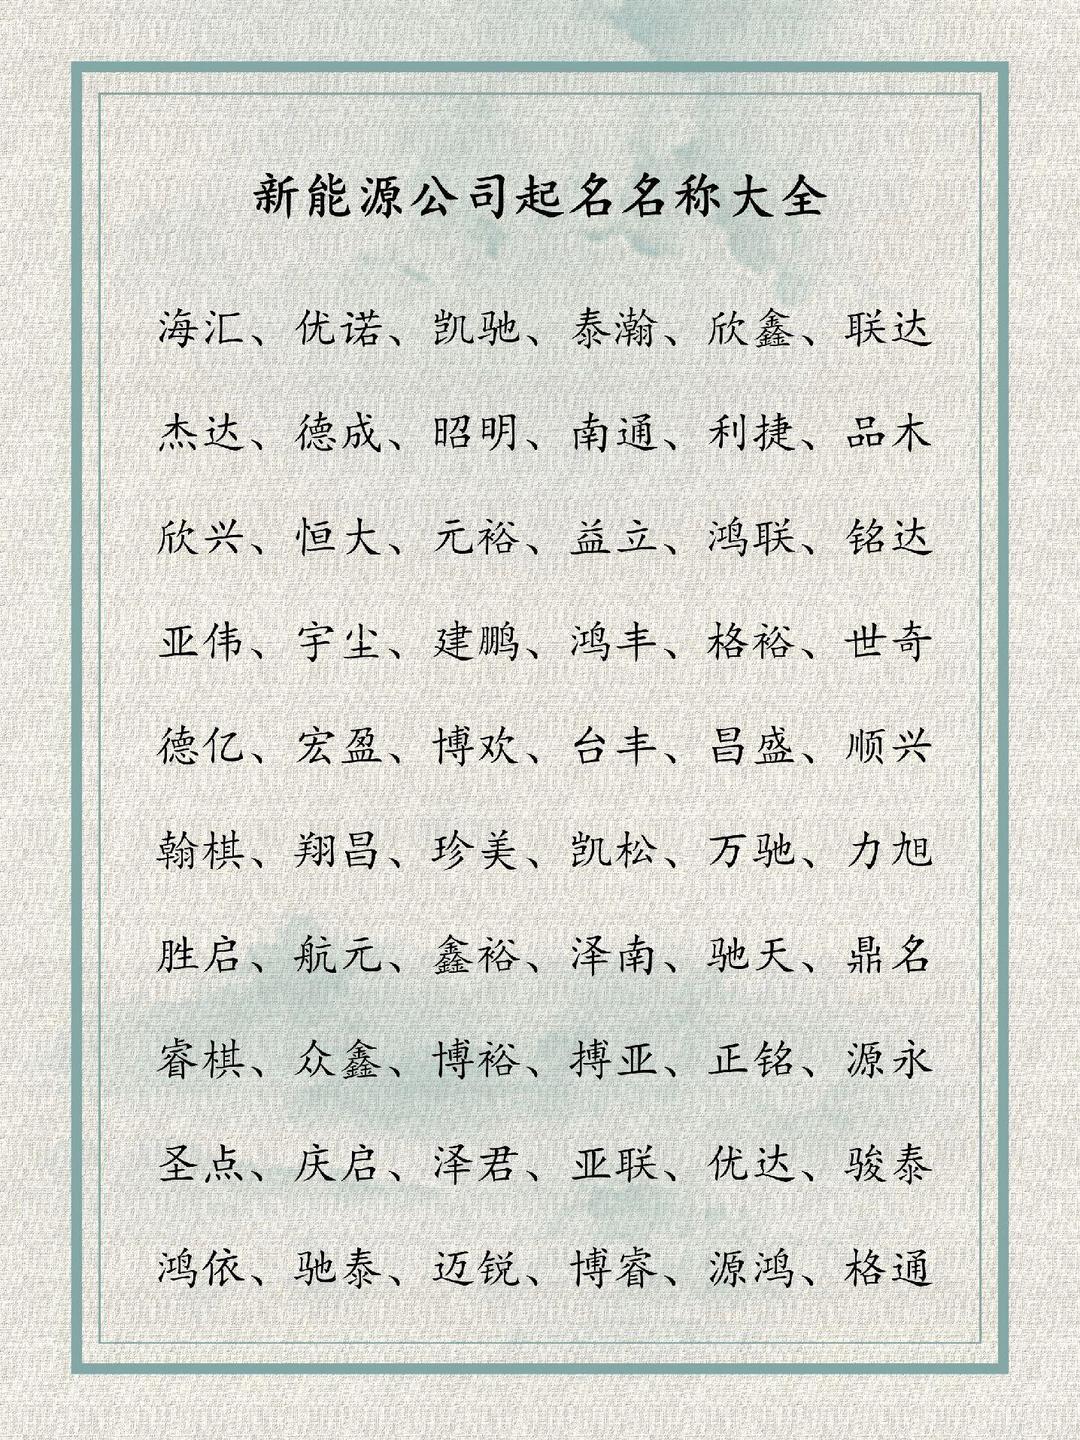 新能源公司起名名称大全
海汇、优诺、凯驰、泰瀚、欣鑫、联达
杰达、德成、昭明、南通、利捷、品木
欣兴、恒大、元裕、益立、鸿联、铭达
亚伟、宇尘、建鹏、鸿丰、格裕、世奇
德亿、宏盈、博欢、台丰、昌盛、顺兴
翰棋、翔昌、珍美、凯松、万驰、力旭
胜启、航元、鑫裕、泽南、驰天、鼎名
睿棋、众鑫、博裕、搏亚、正铭、源永
圣点、庆启、泽君、亚联、优达、骏泰
鸿依、驰泰、迈锐、博睿、源鸿、格通